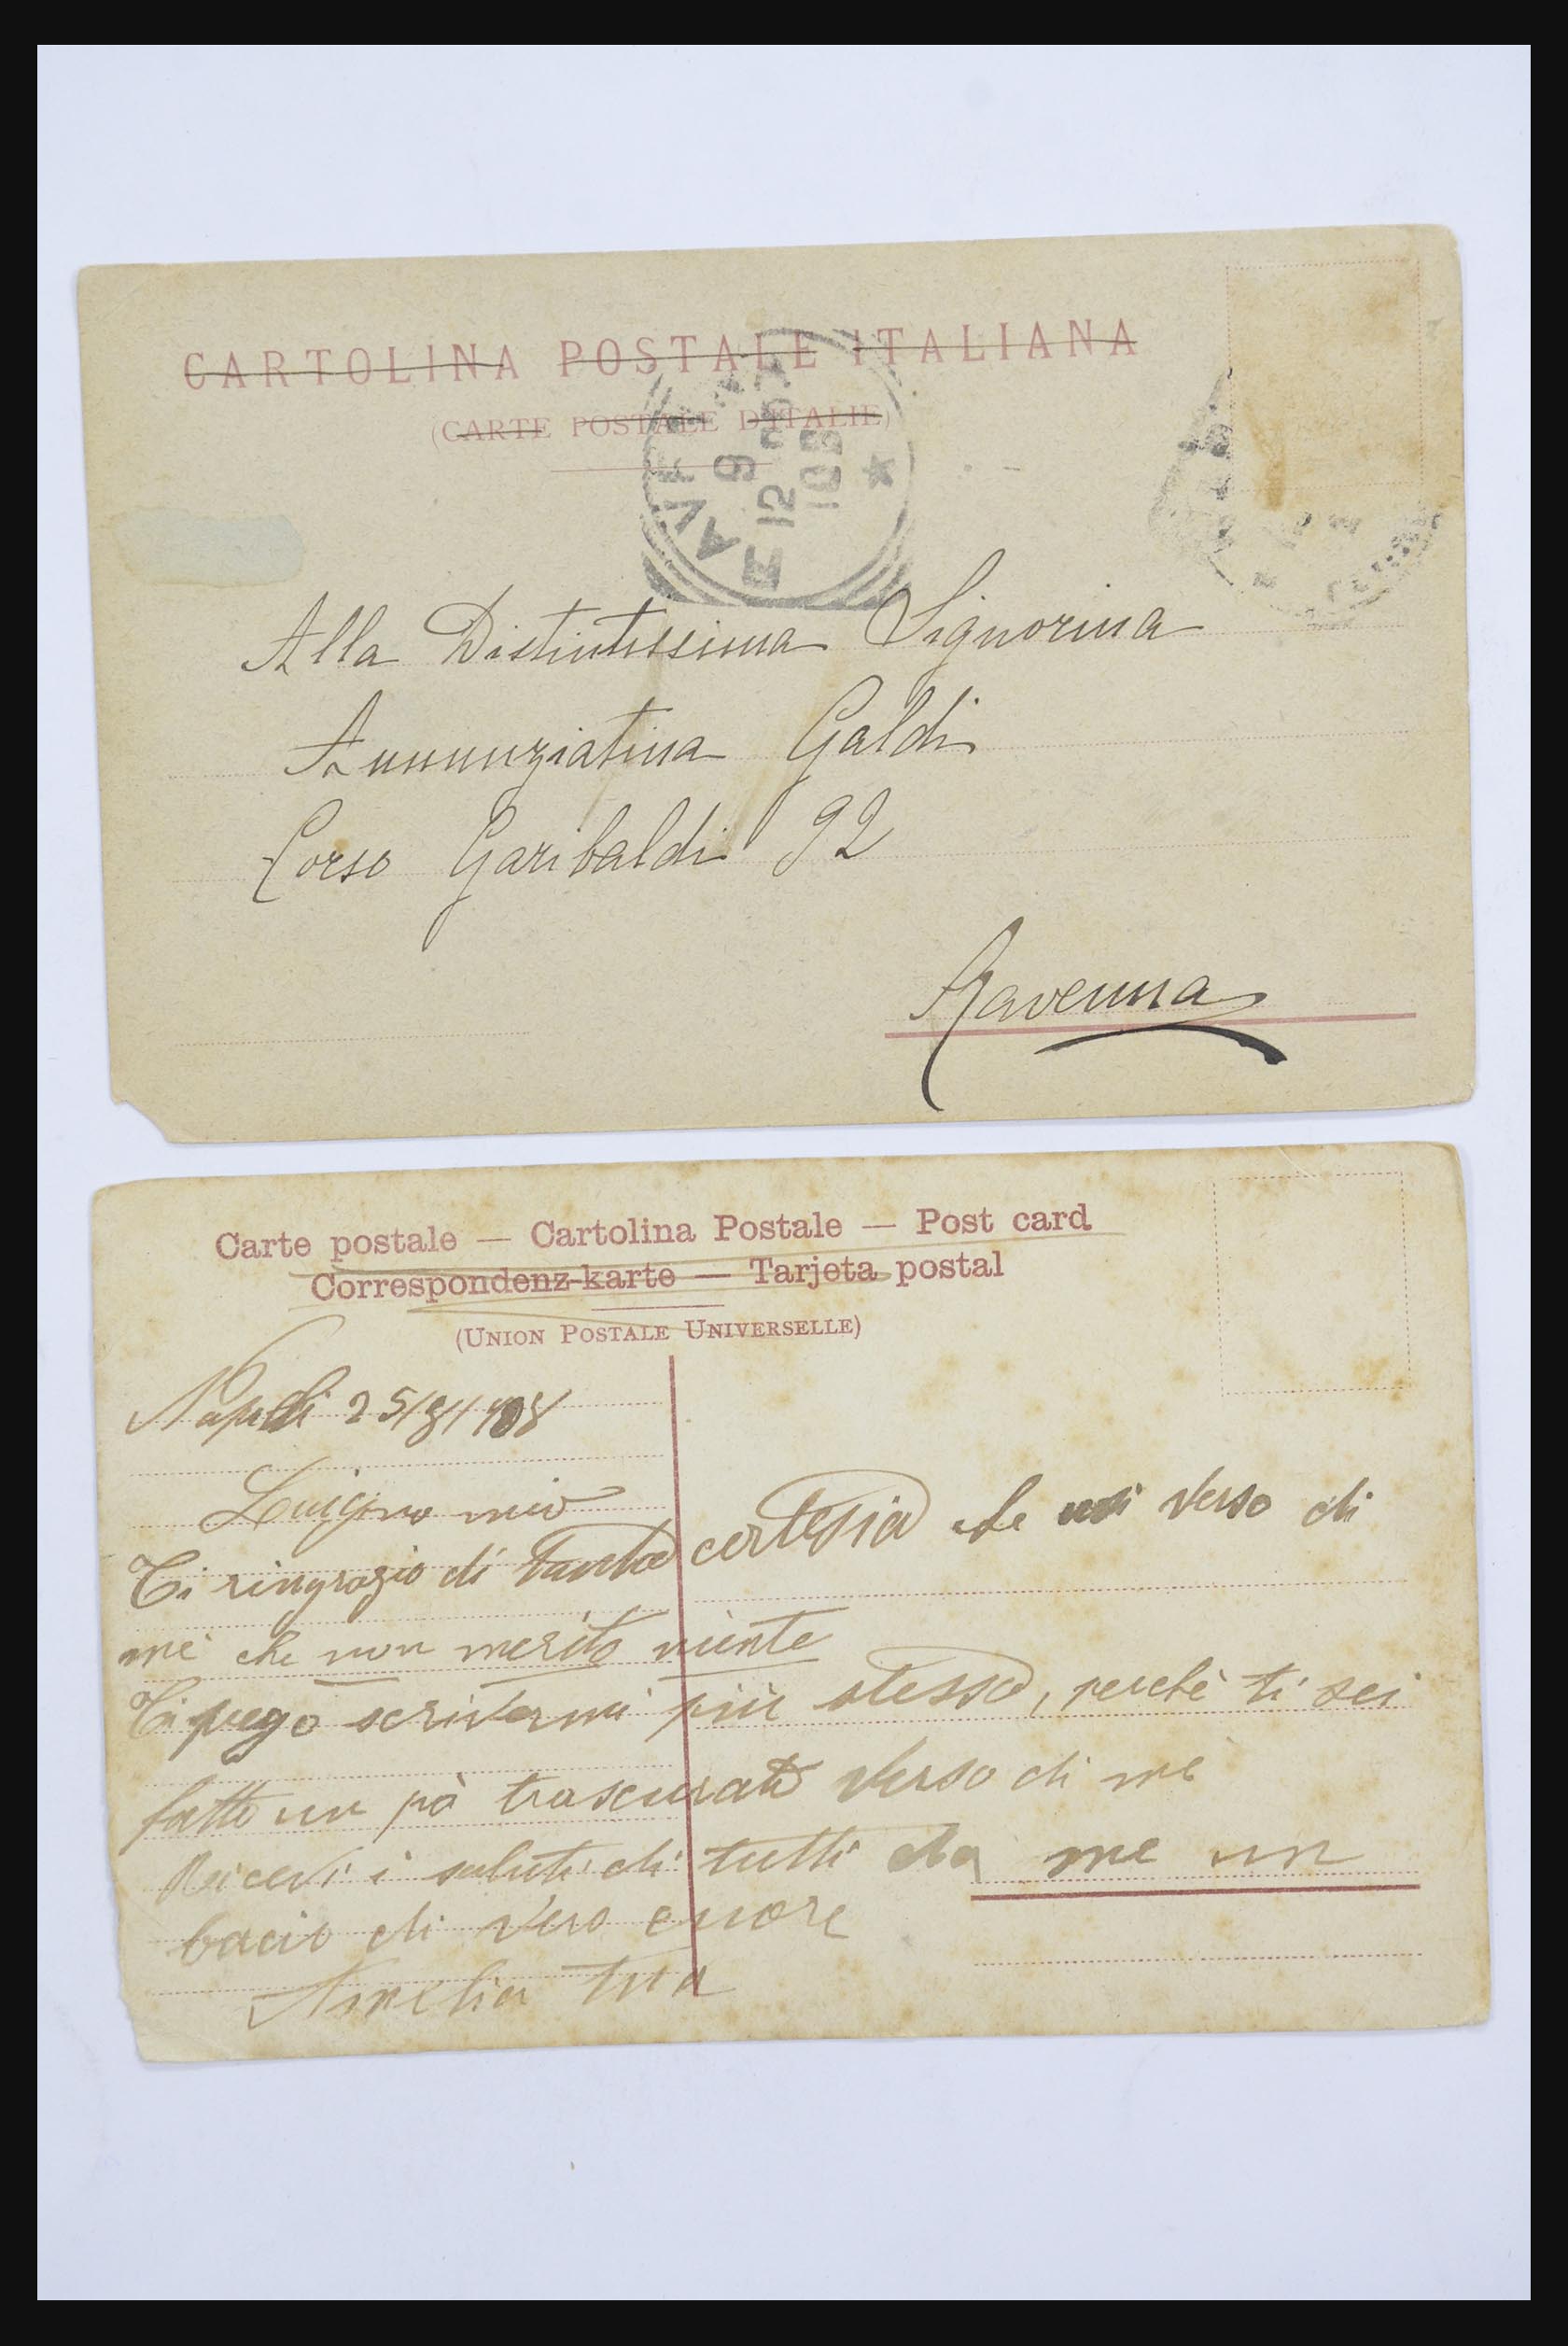 CARTOLINA POSTALE ITALIANA
(CARTE POSTALE D'ITALIE)
RAVE
9
12
10 B
Alla Distintissima Signorina
Annunziatina Galdi
Corso Garibaldi 92
Ravenna
Carte postale — Cartolina Postale — Post card
Correspondenz-karte — Tarjeta postal
(UNION POSTALE UNIVERSELLE)
Napoli 25/8/908
Luigino mio
Ti ringrazio di tanta cortesia che usi verso di
me che non merito niente
Ti prego scrivermi più stesso, perchè ti sei
fatto un pò trascurato verso di me
Ricevi i saluti di tutti da me un
bacio di vero cuore
Amelia tua